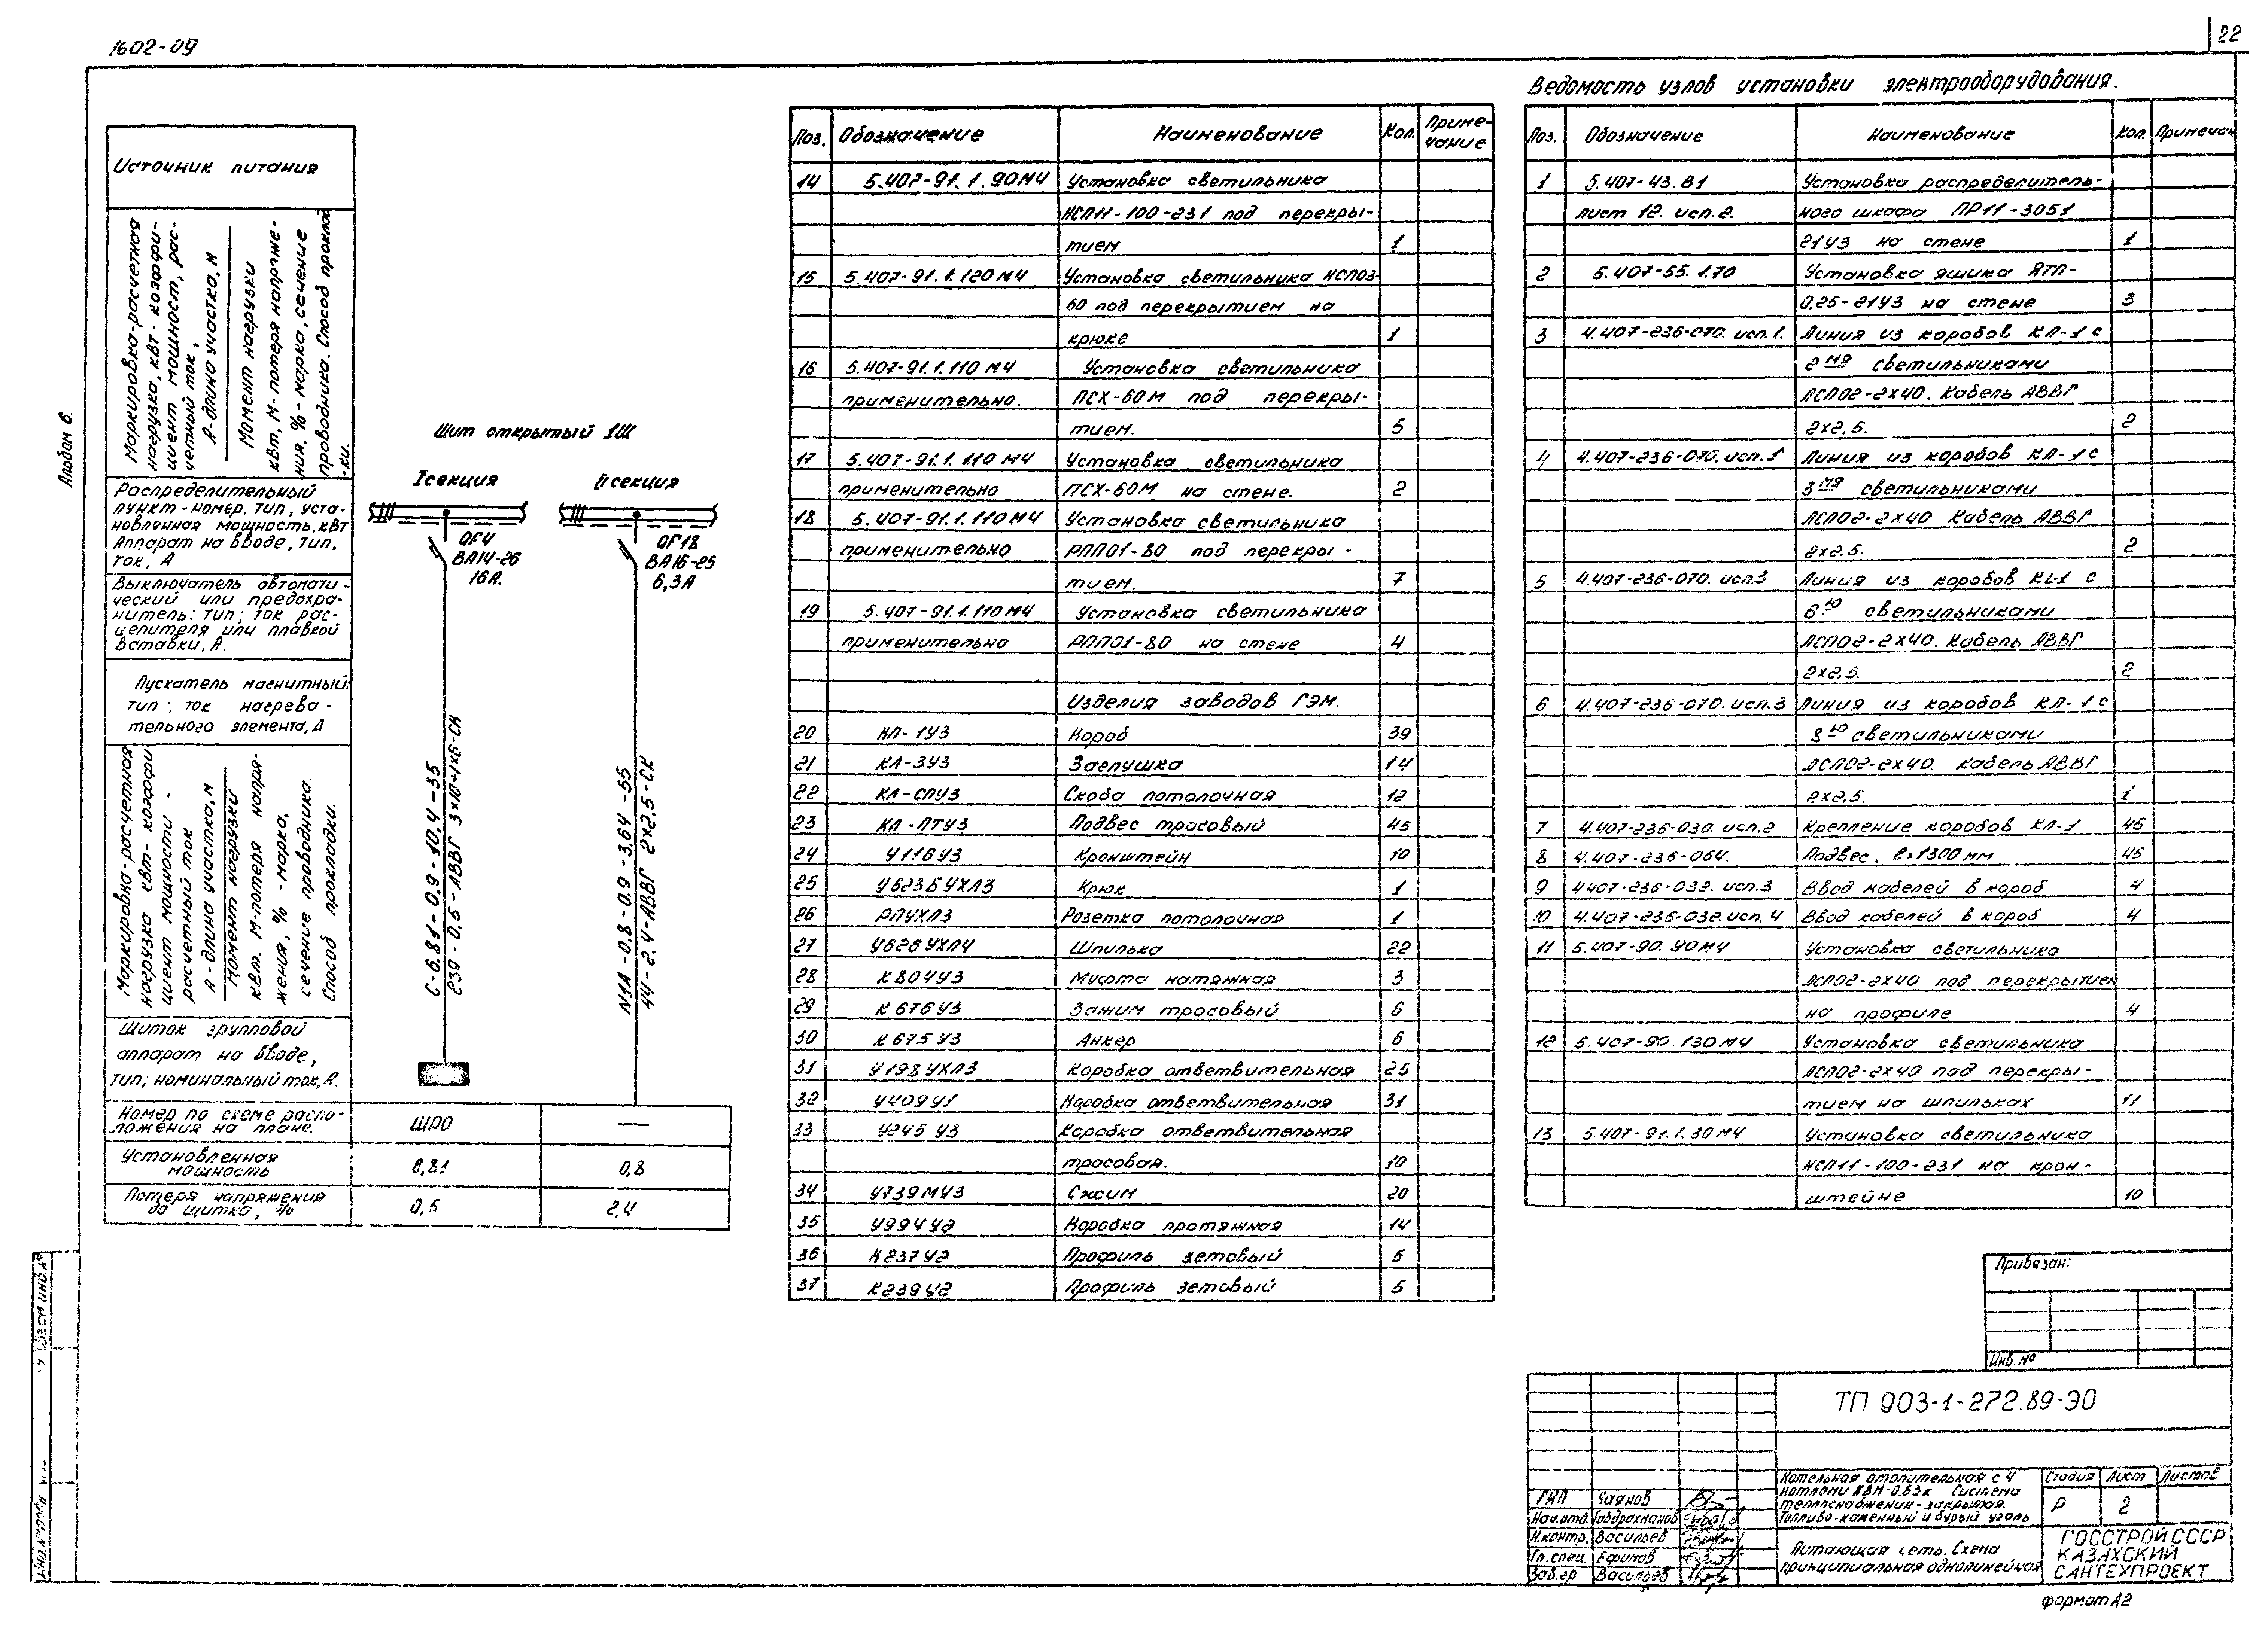 1602-09
22
Альбом 6.
Источник питания
Маркировка-расчетная
нагрузка, квт-коэффи-
циент мощност, рас-
четный ток,
А-длина участка, м
Момент нагрузки
квт, м-потеря напряже-
ния, %-марка, сечение
проводника. Способ проклад
-ки.
Распределительный
пункт-номер, тип, уста-
новленная мощность, квт
Аппарат на вводе, тип,
ток, А
Выключатель автомати-
ческий или предохра-
нитель: тип; ток рас-
цепителя или плавкой
вставки, А.
Пускатель магнитный:
тип; ток нагрева-
тельного элемента, А
Маркировка-расчетная
нагрузка квт-коэффи
циент мощности -
расчетный ток
А-длина участка, м
Момент нагрузки
квт. м-потеря напря-
жения, % -марка,
сечение проводника.
Способ прокладки.
Щиток групповой
аппарат на вводе,
тип; номинальный ток, А.
Номер по схеме распо-
ложения на плане. ЩРО —
Установленная
мощность 6,81 0,8
Потеря напряжения
до щитка, % 0,5 2,4
Щит открытый 1Щ
I секция II секция
QF4
ВА14-26
16А.
QF18
ВА16-25
6,3А
С-6.81-0.9-10.4-35
239-0,5-АВВГ 3х10+1х6-СК
N1А-0.8-0.9-3.64-55
44-2.4-АВВГ 2х2,5-СК
Поз. Обозначение Наименование Кол. Приме-
чание
14 5.407-91.1.90МЧ Установка светильника
НСП11-100-231 под перекры-
тием 1
15 5.407-91.1.120МЧ Установка светильника НСП03-
60 под перекрытием на
крюке 1
16 5.407-91.1.110МЧ Установка светильника
применительно. ПСХ-60М под перекры-
тием. 5
17 5.407-91.1.110МЧ Установка светильника
применительно ПСХ-60М на стене. 2
18 5.407-91.1.110МЧ Установка светильника
применительно РПП01-80 под перекры-
тием. 7
19 5.407-91.1.110МЧ Установка светильника
применительно РПП01-80 на стене 4
Изделия заводов ГЭМ.
20 КЛ-1У3 Короб 39
21 КЛ-3У3 Заглушка 14
22 КЛ-СПУ3 Скоба потолочная 12
23 КЛ-ПТУ3 Подвес тросовый 45
24 У116У3 Кронштейн 10
25 У623БУХЛ3 Крюк 1
26 РПУХЛ3 Розетка потолочная 1
27 У626УХЛ4 Шпилька 22
28 К804У3 Муфта натяжная 3
29 К676У3 Зажим тросовый 6
30 К675У3 Анкер 6
31 У198УХЛ3 Коробка ответвительная 25
32 У409У1 Коробка ответвительная 31
33 У245У3 Коробка ответвительная
тросовая. 10
34 У739МУ3 Сжим 20
35 У994У2 Коробка протяжная 14
36 К237У2 Профиль зетовый 5
37 К239У2 Профиль зетовый 5
Ведомость узлов установки электрооборудования.
Поз. Обозначение Наименование Кол. Примечан
1 5.407-43.В1 Установка распределитель-
лист 12. исп.2. ного шкафа ПР11-3051
21У3 на стене 1
2 5.407-55.1.70 Установка ящика ЯТП-
0,25-21У3 на стене 3
3 4.407-236-070. исп.1. Линия из коробов КЛ-1 с
2мя светильниками
ЛСП02-2х40. Кабель АВВГ
2х2,5. 2
4 4.407-236-070. исп.1 Линия из коробов КЛ-1 с
3мя светильниками
ЛСП02-2х40 Кабель АВВГ
2х2.5. 2
5 4.407-236-070. исп.3 Линия из коробов КЛ-1 с
6ю светильниками
ЛСП02-2х40. Кабель АВВГ
2х2,5. 2
6 4.407-236-070. исп.3 Линия из коробов КЛ-1 с
8ю светильниками
ЛСП02-2х40. кабель АВВГ
2х2,5. 1
7 4.407-236-030. исп.2 Крепление коробов КЛ-1 45
8 4.407-236-064. Подвес. ℓ=1300мм 45
9 4.407-236-032. исп.3 Ввод кабелей в короб 4
10 4.407-236-032. исп.4 Ввод кабелей в короб 4
11 5.407-90.90МЧ Установка светильника
ЛСП02-2х40 под перекрытием
на профиле 4
12 5.407-90.130МЧ Установка светильника
ЛСП02-2х40 под перекры-
тием на шпильках 11
13 5.407-91.1.30МЧ Установка светильника
НСП11-100-231 на крон-
штейне 10
Привязан:
Инв. №
ТП 903-1-272.89-ЭО
Котельная отопительная с 4
котлами КВм-0.63к Система
теплоснабжения-закрытая.
Топливо-каменный и бурый уголь
Стадия Лист Листов
Р 2
ГИП Чаянов
Нач.отд. Габдрахманов
Н.контр. Васильев
Гл.спец. Ефимов
Зав.гр Васильев
Питающая сеть. Схема
принципиальная однолинейная
ГОССТРОЙ СССР
КАЗАХСКИЙ
САНТЕХПРОЕКТ
формат А2